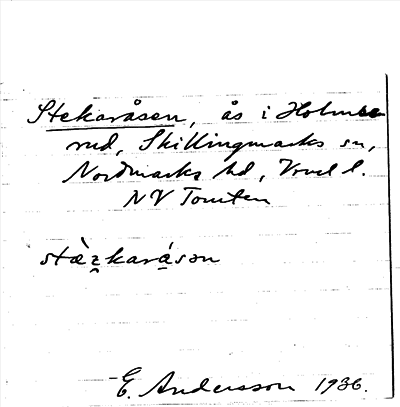 Stekaråsen, ås i Holmse-
rud, Skillingmarks sn,
Nordmarks hd, Vrml l.
NV Tomten
E. Andersson 1936.